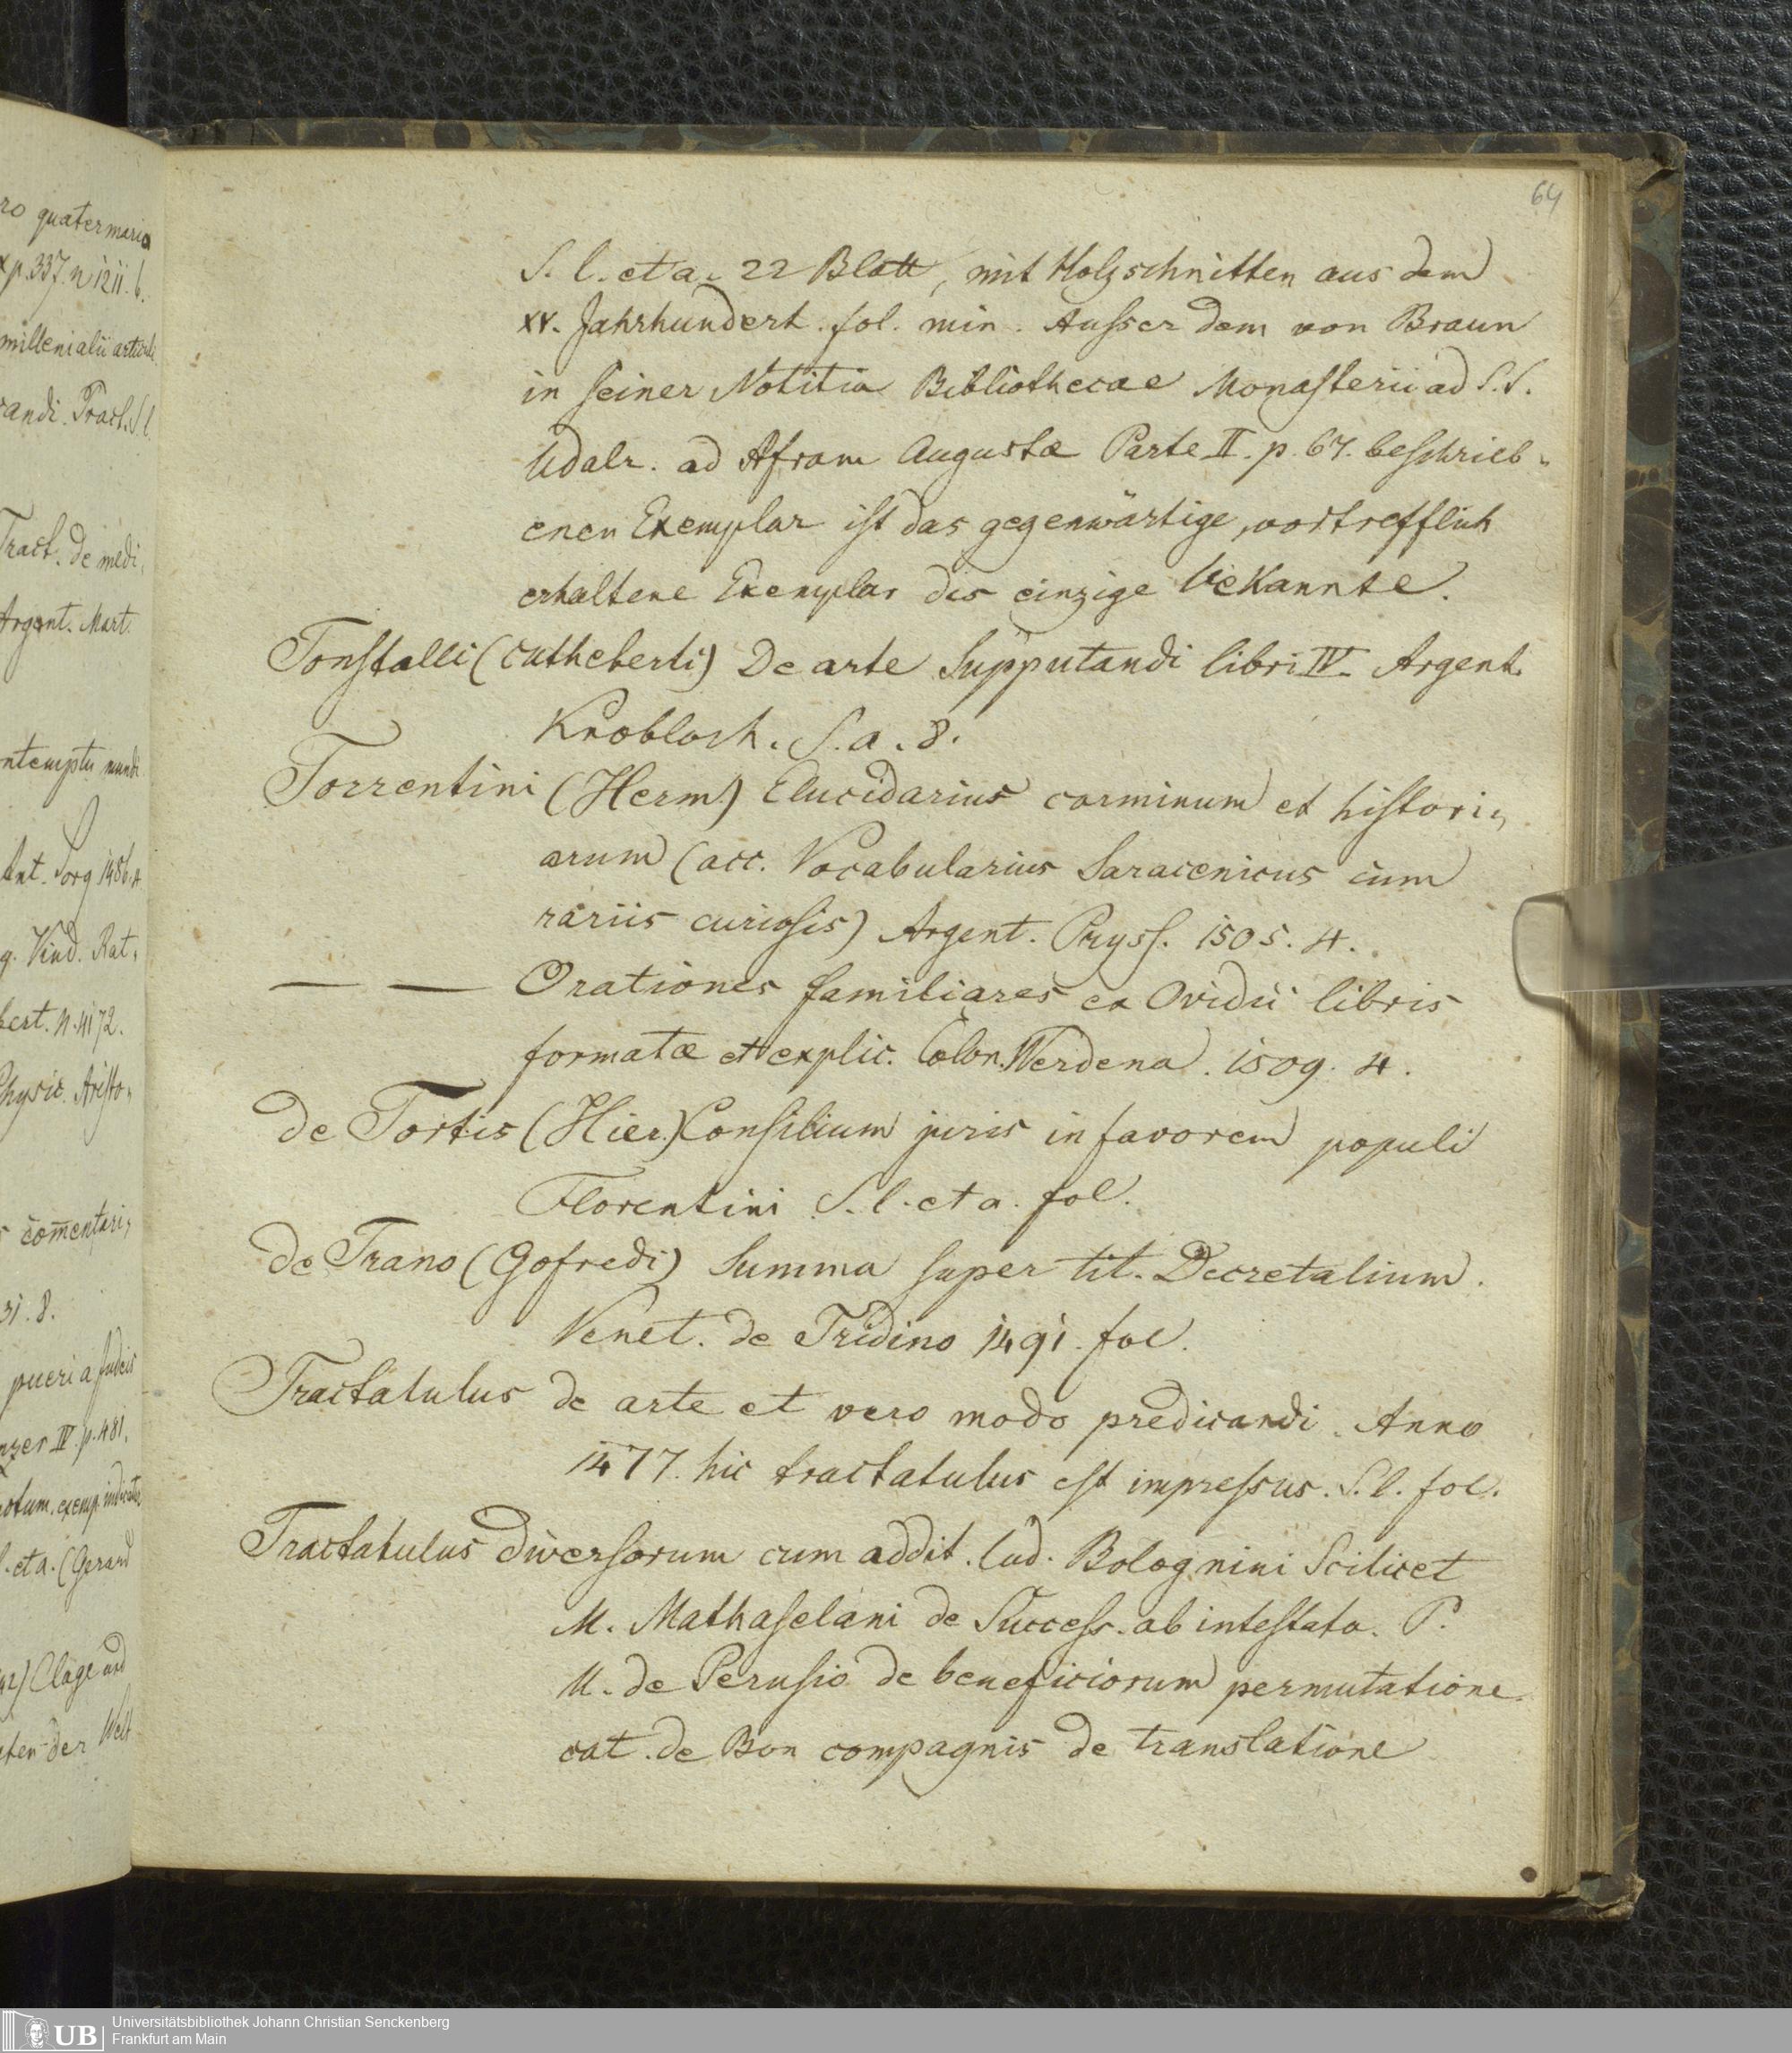 64
S. l. et a. 22 Blatt, mit Holzschnitten aus dem
XV. Jahrhundert. fol. min. Ausser dem von Braun
in seiner Notitia Bibliothecae Monasterii ad S. S.
Udalr. ad Afram Augustæ Parte II. p. 67. beschrieb-
enen Exemplar ist das gegenwärtige, vortrefflich
erhaltene Exemplar das einzige bekannte.
Tonstalli (cutheberti) De arte Supputandi libri IV. Argent.
Knobloch. S. a. 8.
Torrentini (Herm.) Elucidarius carminum et histori,,
arum (acc. Vocabularius Saracenicus cum
rariis curiosis) Argent. Pryss. 1505. 4.
— — Orationes familiares ex Ovidii libris
formatæ et explic. Colon. Werdena. 1509. 4.
de Tortis (Hier.) Consilium juris in favorem populi
Florentini S. l. et a. fol.
de Trano (Gofredi) Summa super tit. Decretalium.
Venet. de Tridino 1491. fol.
Tractatulus de arte et vero modo predicandi. Anno
1477. hic tractatulus est impressus. S. l. fol.
Tractatulus diversorum cum addit. Lud. Bolognini Scilicet
M. Mathaselani de Success. ab intestato. P.
U. de Perusio de beneficiorum permutatione.
cat. de Bon compagnis de translatione
ro quatermario
p. 337. n 1211. b.
millenialii articuli
randi. Tract. S. l.
Tract. de medi,
Argent. Mart.
ntemptu mundi
Ant. Sorg 1486. 4
g. Vind. Rat,
bert. n. 4172.
Physic. Aristo,
s comentari,
31. 8.
pueri a Judeis
nzer IV. p. 481.
notum. exemp. indicatur
l. et a. (Gerard
Clage und
ten der Welt
UB
Universitätsbibliothek Johann Christian Senckenberg
Frankfurt am Main